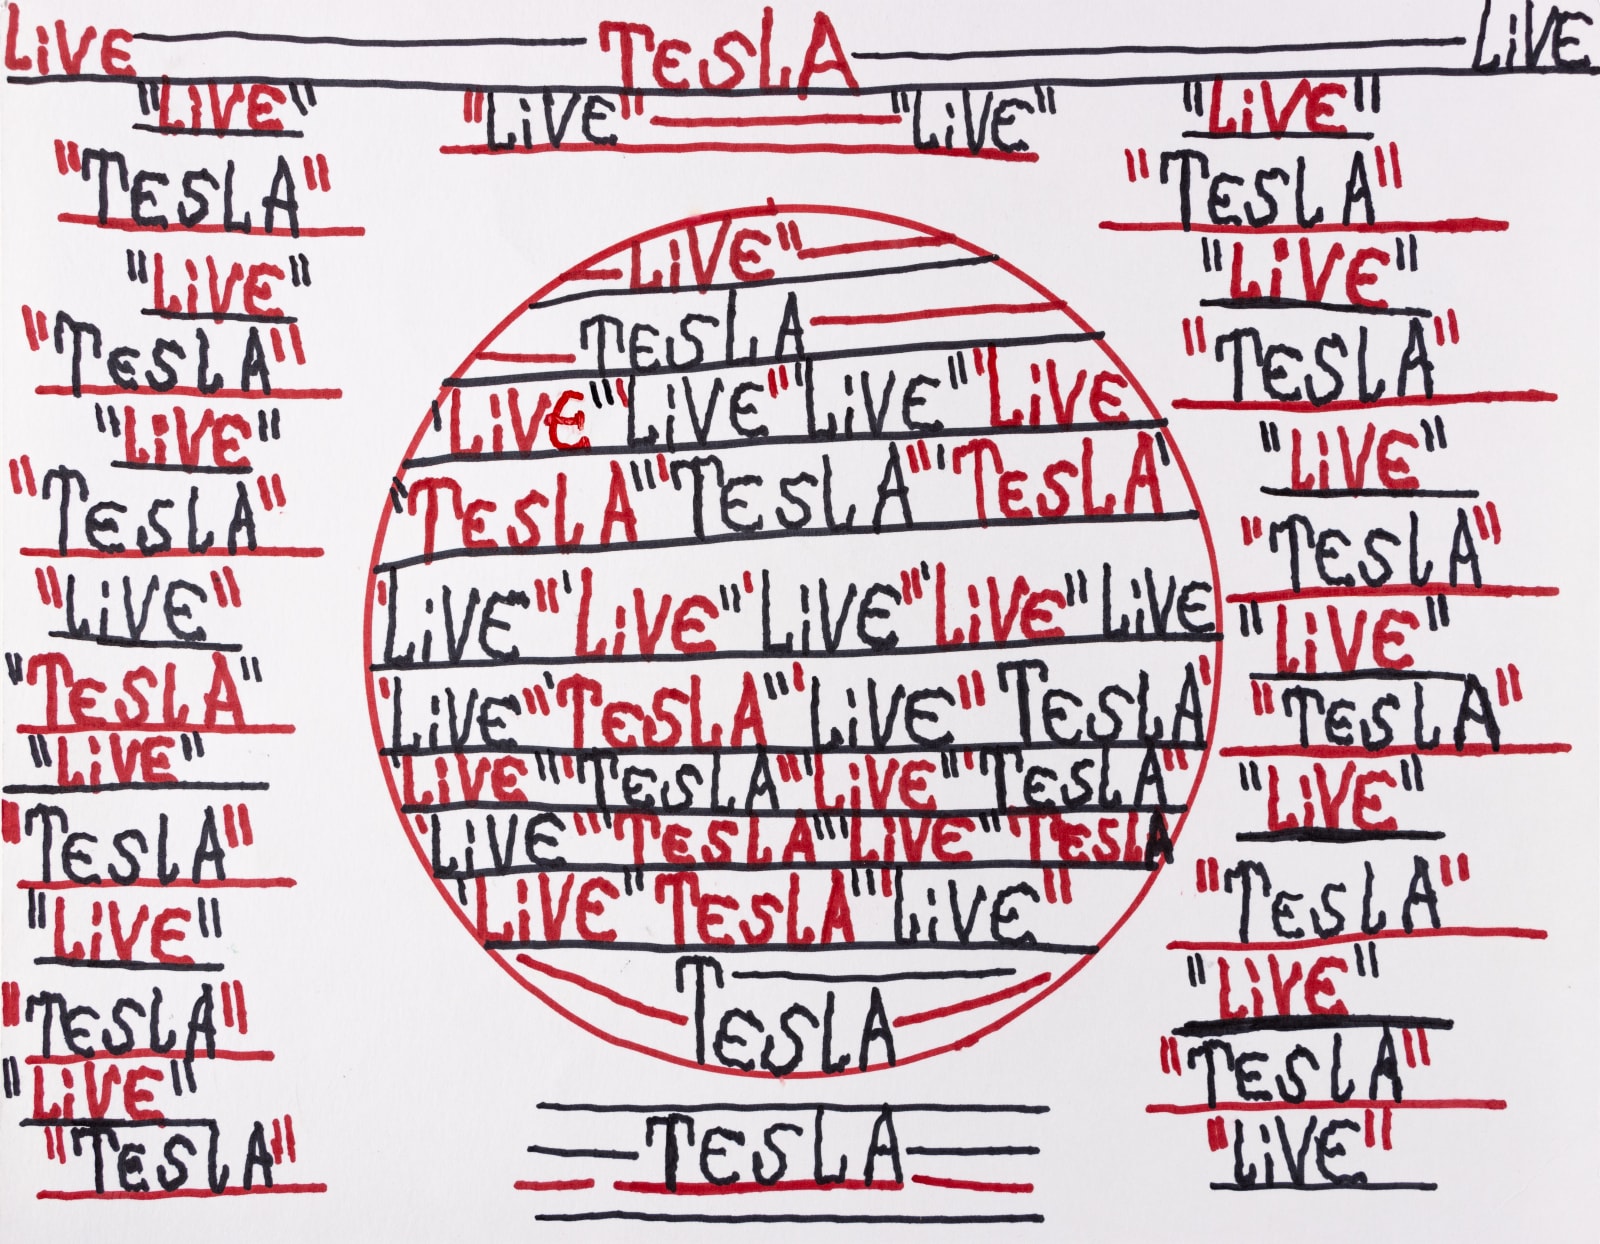 LiVE TESLA LiVE
"LiVE"
"TESLA"
"LiVE"
"TESLA"
"LiVE"
"TESLA"
"LiVE"
"TESLA"
"LiVE"
"TESLA"
"LiVE"
"TESLA"
"LiVE"
"TESLA"
"LiVE" "LiVE"
LiVE"
TESLA
'LiVE"'LiVE"'LiVE"'LiVE
'TESLA"'TESLA"'TESLA'
'LiVE"'LiVE"'LiVE"'LiVE"LiVE
'LiVE"'TESLA"'LiVE"TESLA'
'LiVE"'TESLA"'LiVE"'TESLA"
'LiVE"'TESLA"'LiVE"'TESLA
'LiVE"TESLA"'LiVE"
TESLA
TESLA
"LiVE"
"TESLA"
"LiVE"
"TESLA"
"LiVE"
"TESLA"
"LiVE"
"TESLA"
"LiVE"
"TESLA"
"LiVE"
"TESLA"
"LiVE"